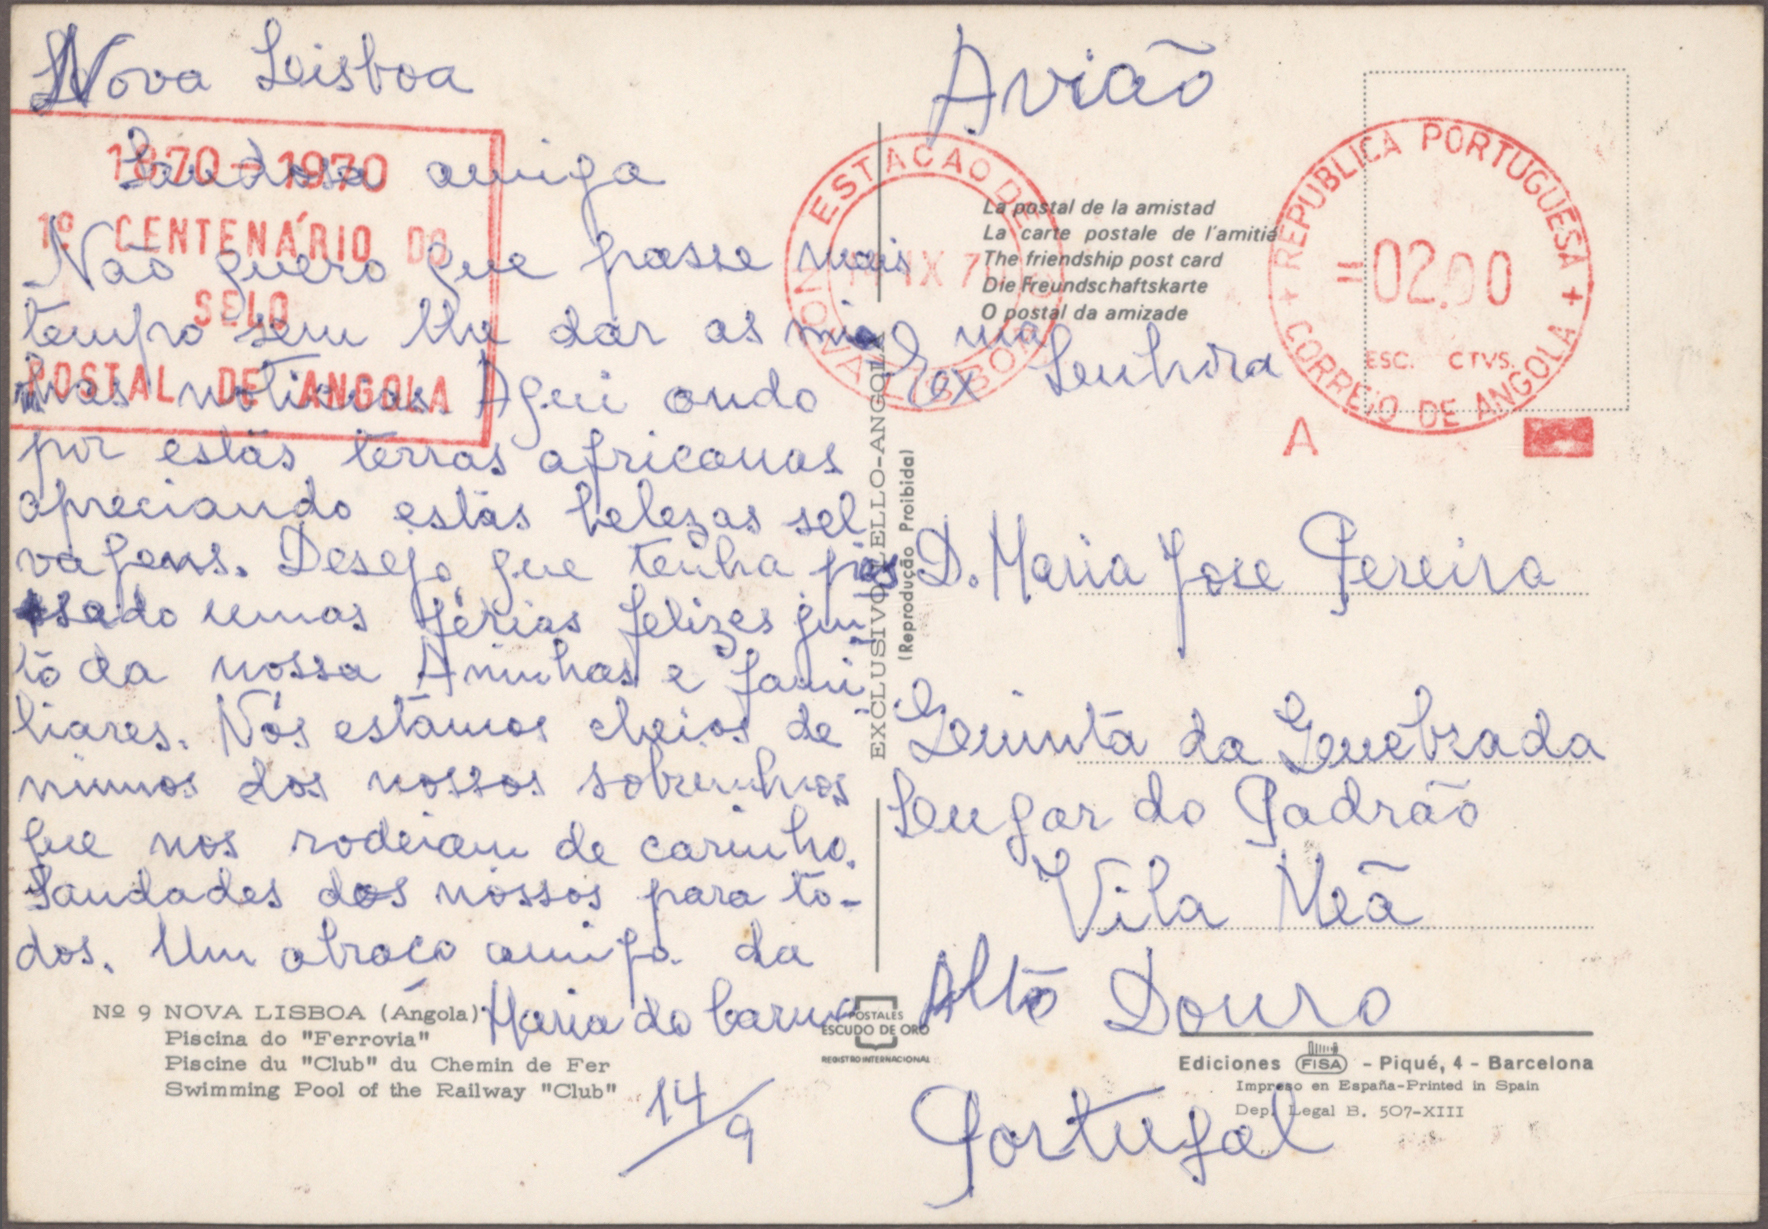 Nova Lisboa
Saudosa amiga
Não quero que passe mais
tempo sem lhe dar as mi-
nhas noticias. Aqui ando
por estas terras africanas
apreciando estas belezas sel
vagens. Desejo que tenha pas
sado umas férias felizes jun
to da nossa Aninhas e fami
liares. Nós estamos cheios de
mimos dos nossos sobrinhos
que nos rodeiam de carinho.
Saudades dos nossos para to-
dos. Um abraço amigo da
Maria do Carmo
14/9
Avião
Ex ma Senhora
D. Maria Jose Pereira
Quinta da Quebrada
Lugar do Padrão
Vila Meã
Alto Douro
Portugal
1870-1970
1º CENTENÁRIO DO
SELO
POSTAL DE ANGOLA
ESTACAO DE
IX 70
NOVA LISBOA
REPUBLICA PORTUGUESA
=02.00
ESC. CTVS.
CORREIO DE ANGOLA
A
La postal de la amistad
La carte postale de l'amitié
The friendship post card
Die Freundschaftskarte
O postal da amizade
EXCLUSIVO LELLO-ANGOLA
(Reprodução Proibida)
Nº 9 NOVA LISBOA (Angola)
Piscina do "Ferrovia"
Piscine du "Club" du Chemin de Fer
Swimming Pool of the Railway "Club"
POSTALES
ESCUDO DE ORO
REGISTRO INTERNACIONAL
Ediciones FISA - Piqué, 4 - Barcelona
Impreso en España-Printed in Spain
Dep. Legal B. 507-XIII